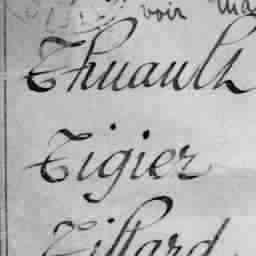 voir
Thuault
Tigier
Tillard